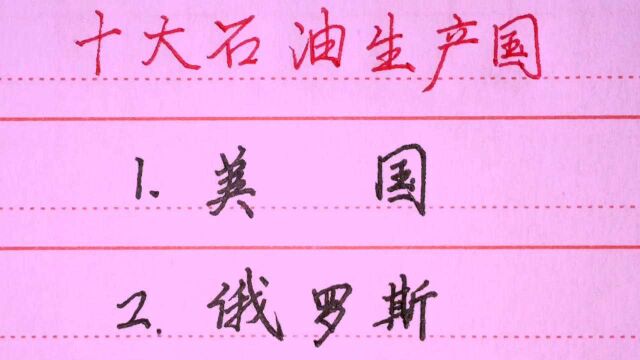 十大石油生产国
1. 美国
2. 俄罗斯